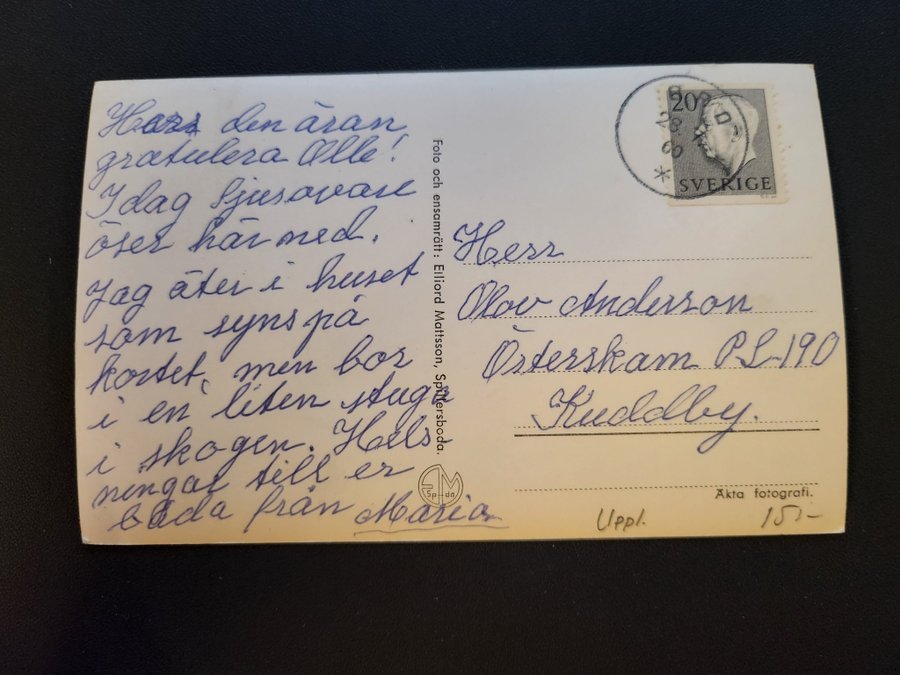 Hars den äran
gratulera Olle!
Idag Sjusovare
öser här ned.
Jag äter i huset
som syns på
kortet, men bor
i en liten stuga
i skogen. Häls-
ningar till er
båda från Maria
Foto och ensamrätt: Elliord Mattsson, Spillersboda.
20
SVERIGE
Herr
Olov Andersson
Österskam PL-190
Kuddby.
Äkta fotografi.
Uppl. 15:-